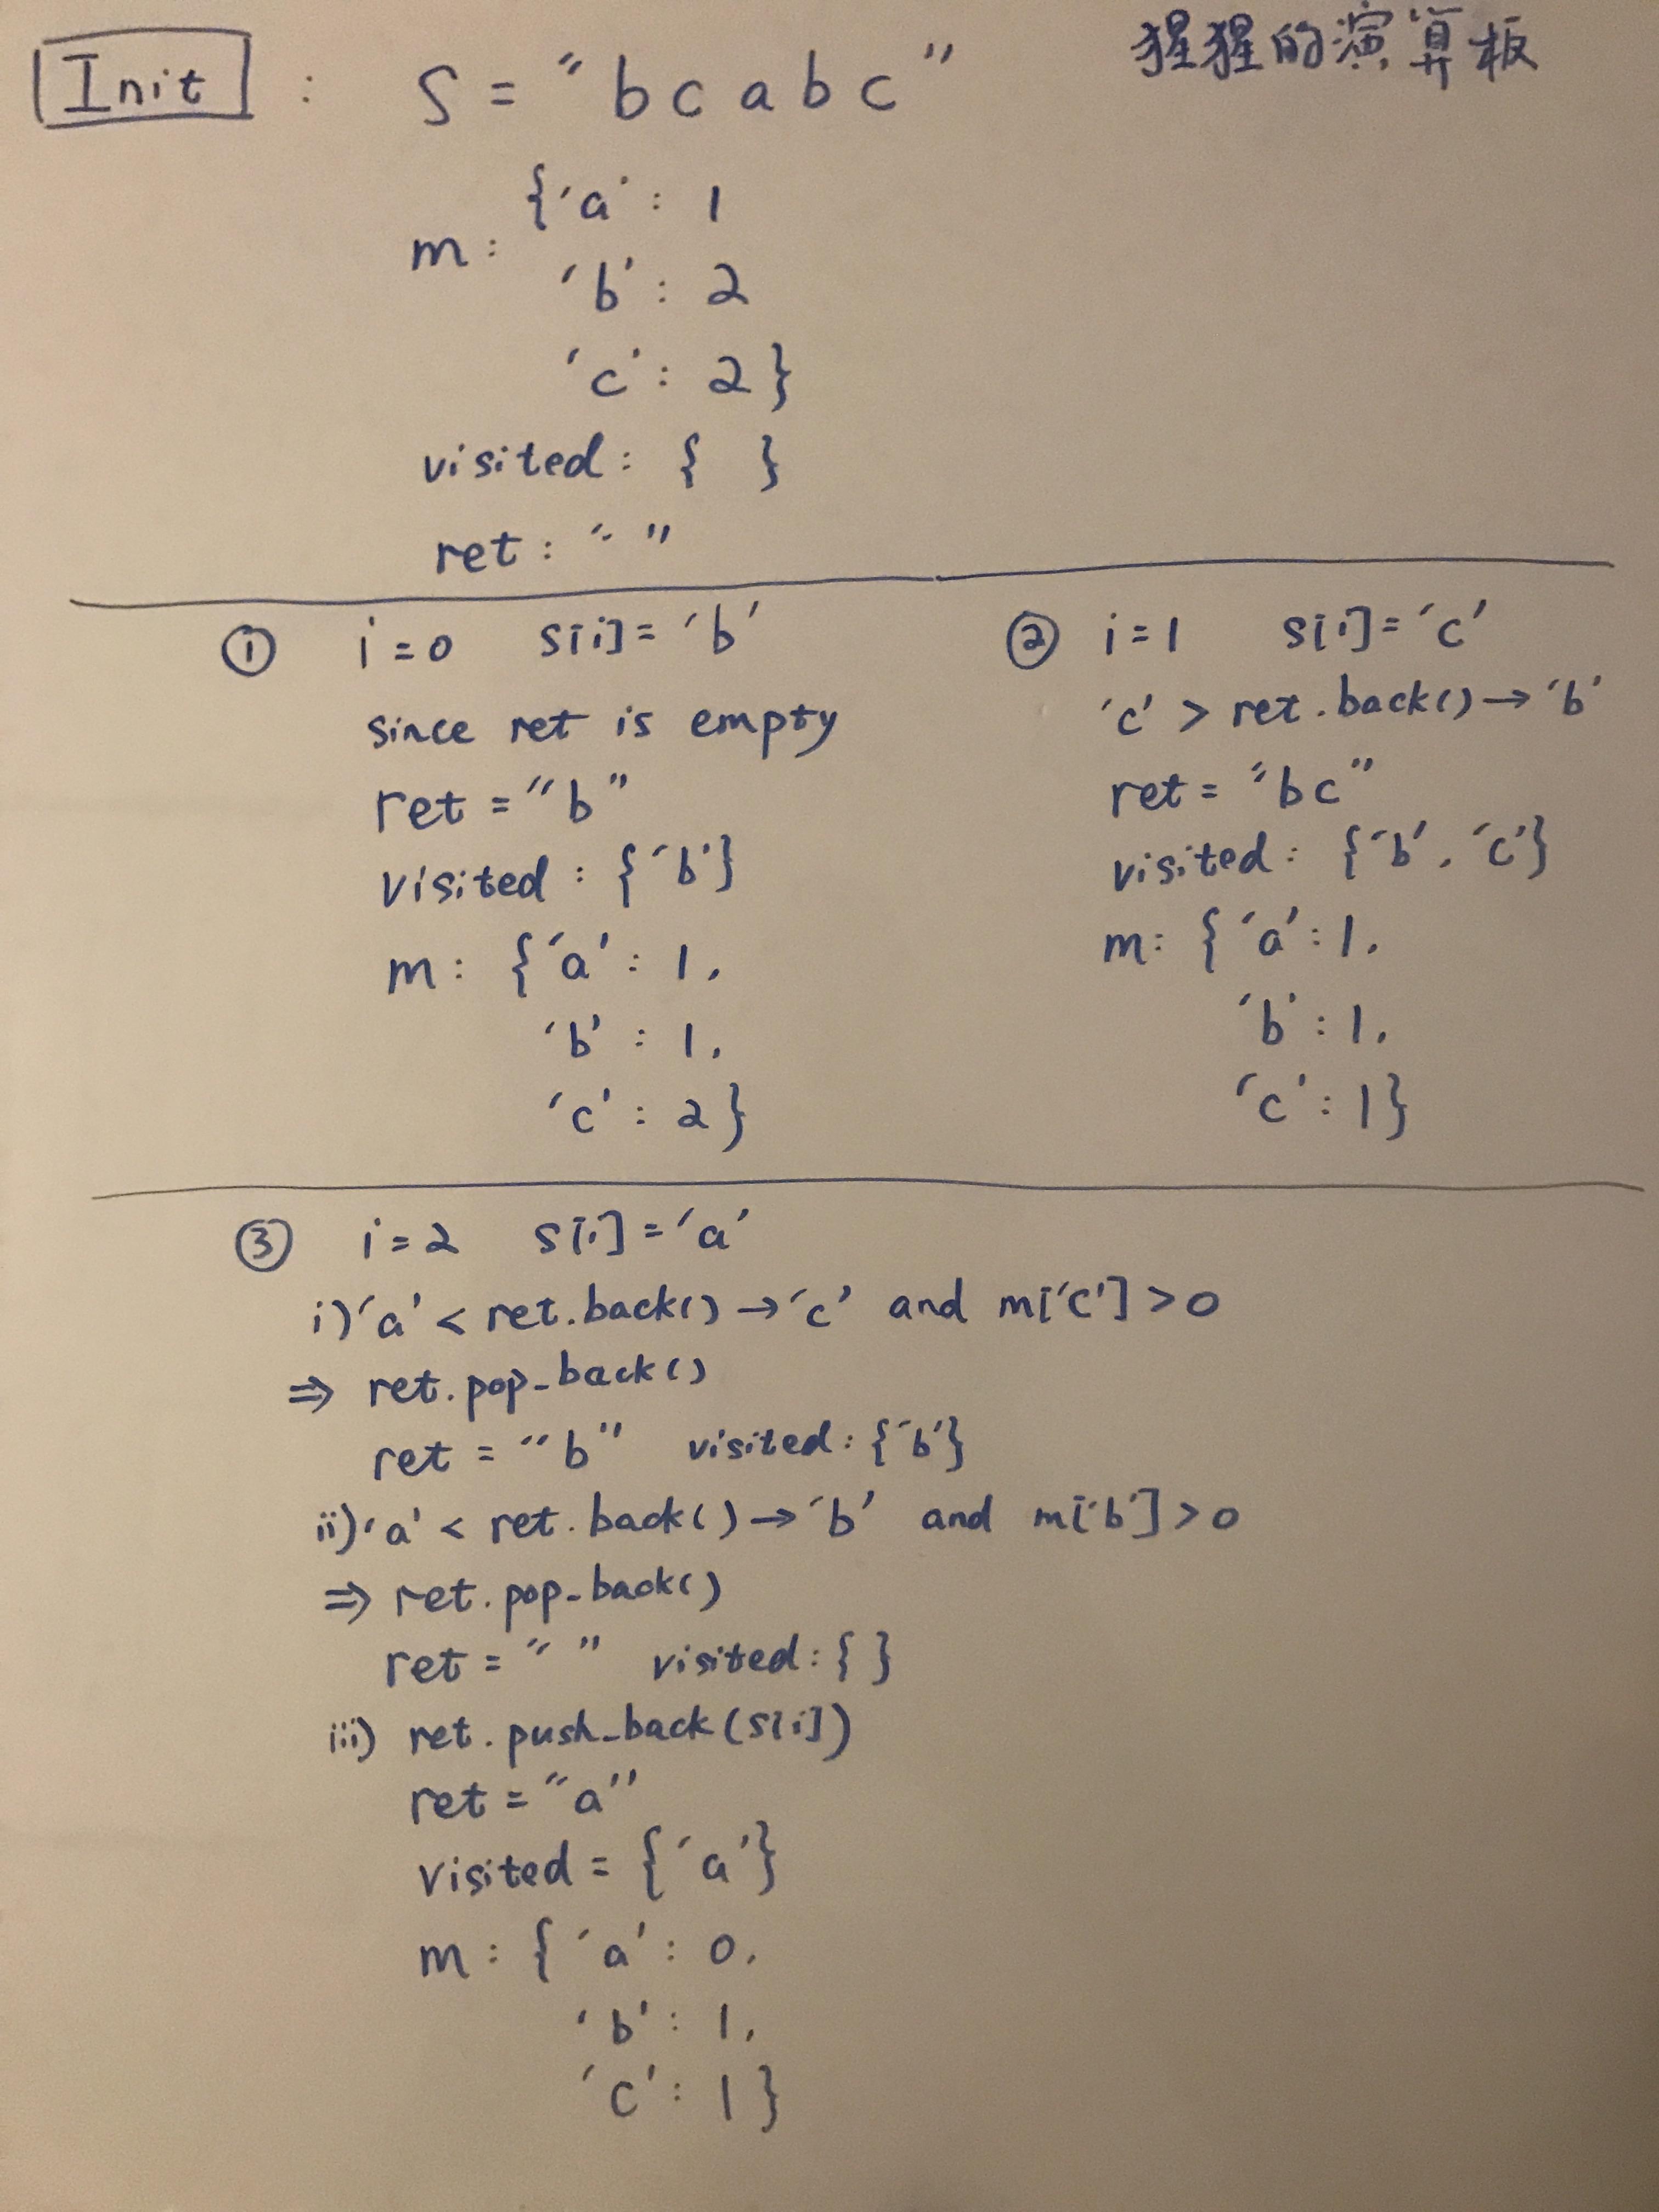 Init : S = "bcabc" 猩猩的演算板
m: {'a': 1
'b': 2
'c': 2}
visited: { }
ret: " "
① i=0 s[i]='b'
since ret is empty
ret="b"
visited: {'b'}
m: {'a': 1,
'b': 1,
'c': 2}
② i=1 s[i]='c'
'c' > ret.back()→'b'
ret="bc"
visited: {'b', 'c'}
m: {'a':1,
'b':1,
'c':1}
③ i=2 s[i]='a'
i) 'a' < ret.back()→'c' and m['c']>0
⇒ ret.pop_back()
ret = "b" visited:{'b'}
ii) 'a' < ret.back()→'b' and m['b']>0
⇒ ret.pop_back()
ret = " " visited:{ }
iii) ret.push_back(s[i])
ret = "a"
visited = {'a'}
m: {'a': 0,
'b': 1,
'c': 1}